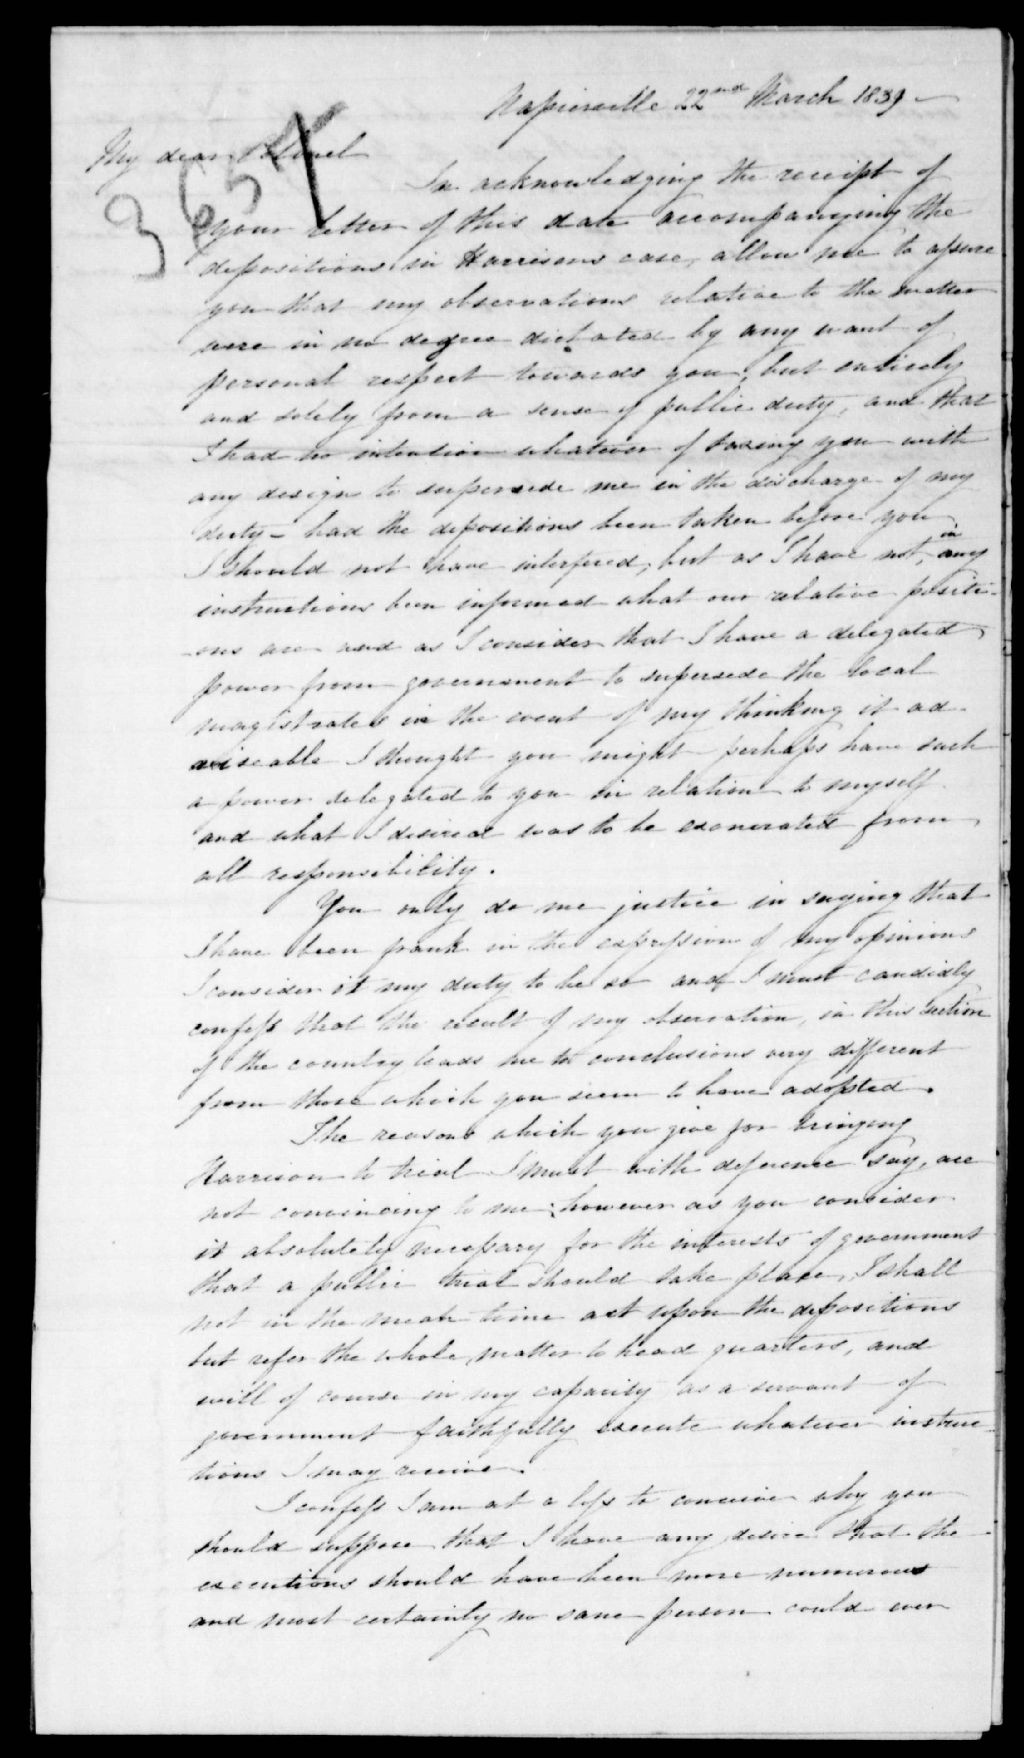 Napierville 22nd March 1839 —
My dear Colonel
3654
In acknowledging the receipt of
your letter of this date accompanying the
depositions in Harrisons case, allow me to assure
you that my observations relative to the matter
were in no degree dictated by any want of
personal respect towards you, but entirely
and solely from a sense of public duty, and that
I had no intention whatever of taxing you with
any design to supersede me in the discharge of my
duty – had the depositions been taken before you
I should not have interfered, but as I have not, in any
instructions been informed what our relative positi-
-ons are and as I consider that I have a delegated
power from government to supersede the local
magistrates in the event of my thinking it ad-
viseable I thought you might perhaps have such
a power delegated to you in relation to myself
and what I desired was to be exonerated from
all responsibility.
You only do me justice in saying that
I have been frank in the expression of my opinions
I consider it my duty to be so and I must candidly
confess that the result of my observation, in this section
of the country leads me to conclusions very different
from those which you seem to have adopted.
The reasons which you give for bringing
Harrison to trial I must with deference say, are
not convincing to me; however as you consider
it absolutely necessary for the interests of government
that a public trial should take place, I shall
not in the mean time act upon the depositions
but refer the whole matter to head quarters, and
will of course in my capacity as a servant of
government faithfully execute whatever instruc-
tions I may receive.
I confess I am at a loss to conceive why you
should suppose that I have any desire that the
executions should have been more numerous
and most certainly no sane person could ever